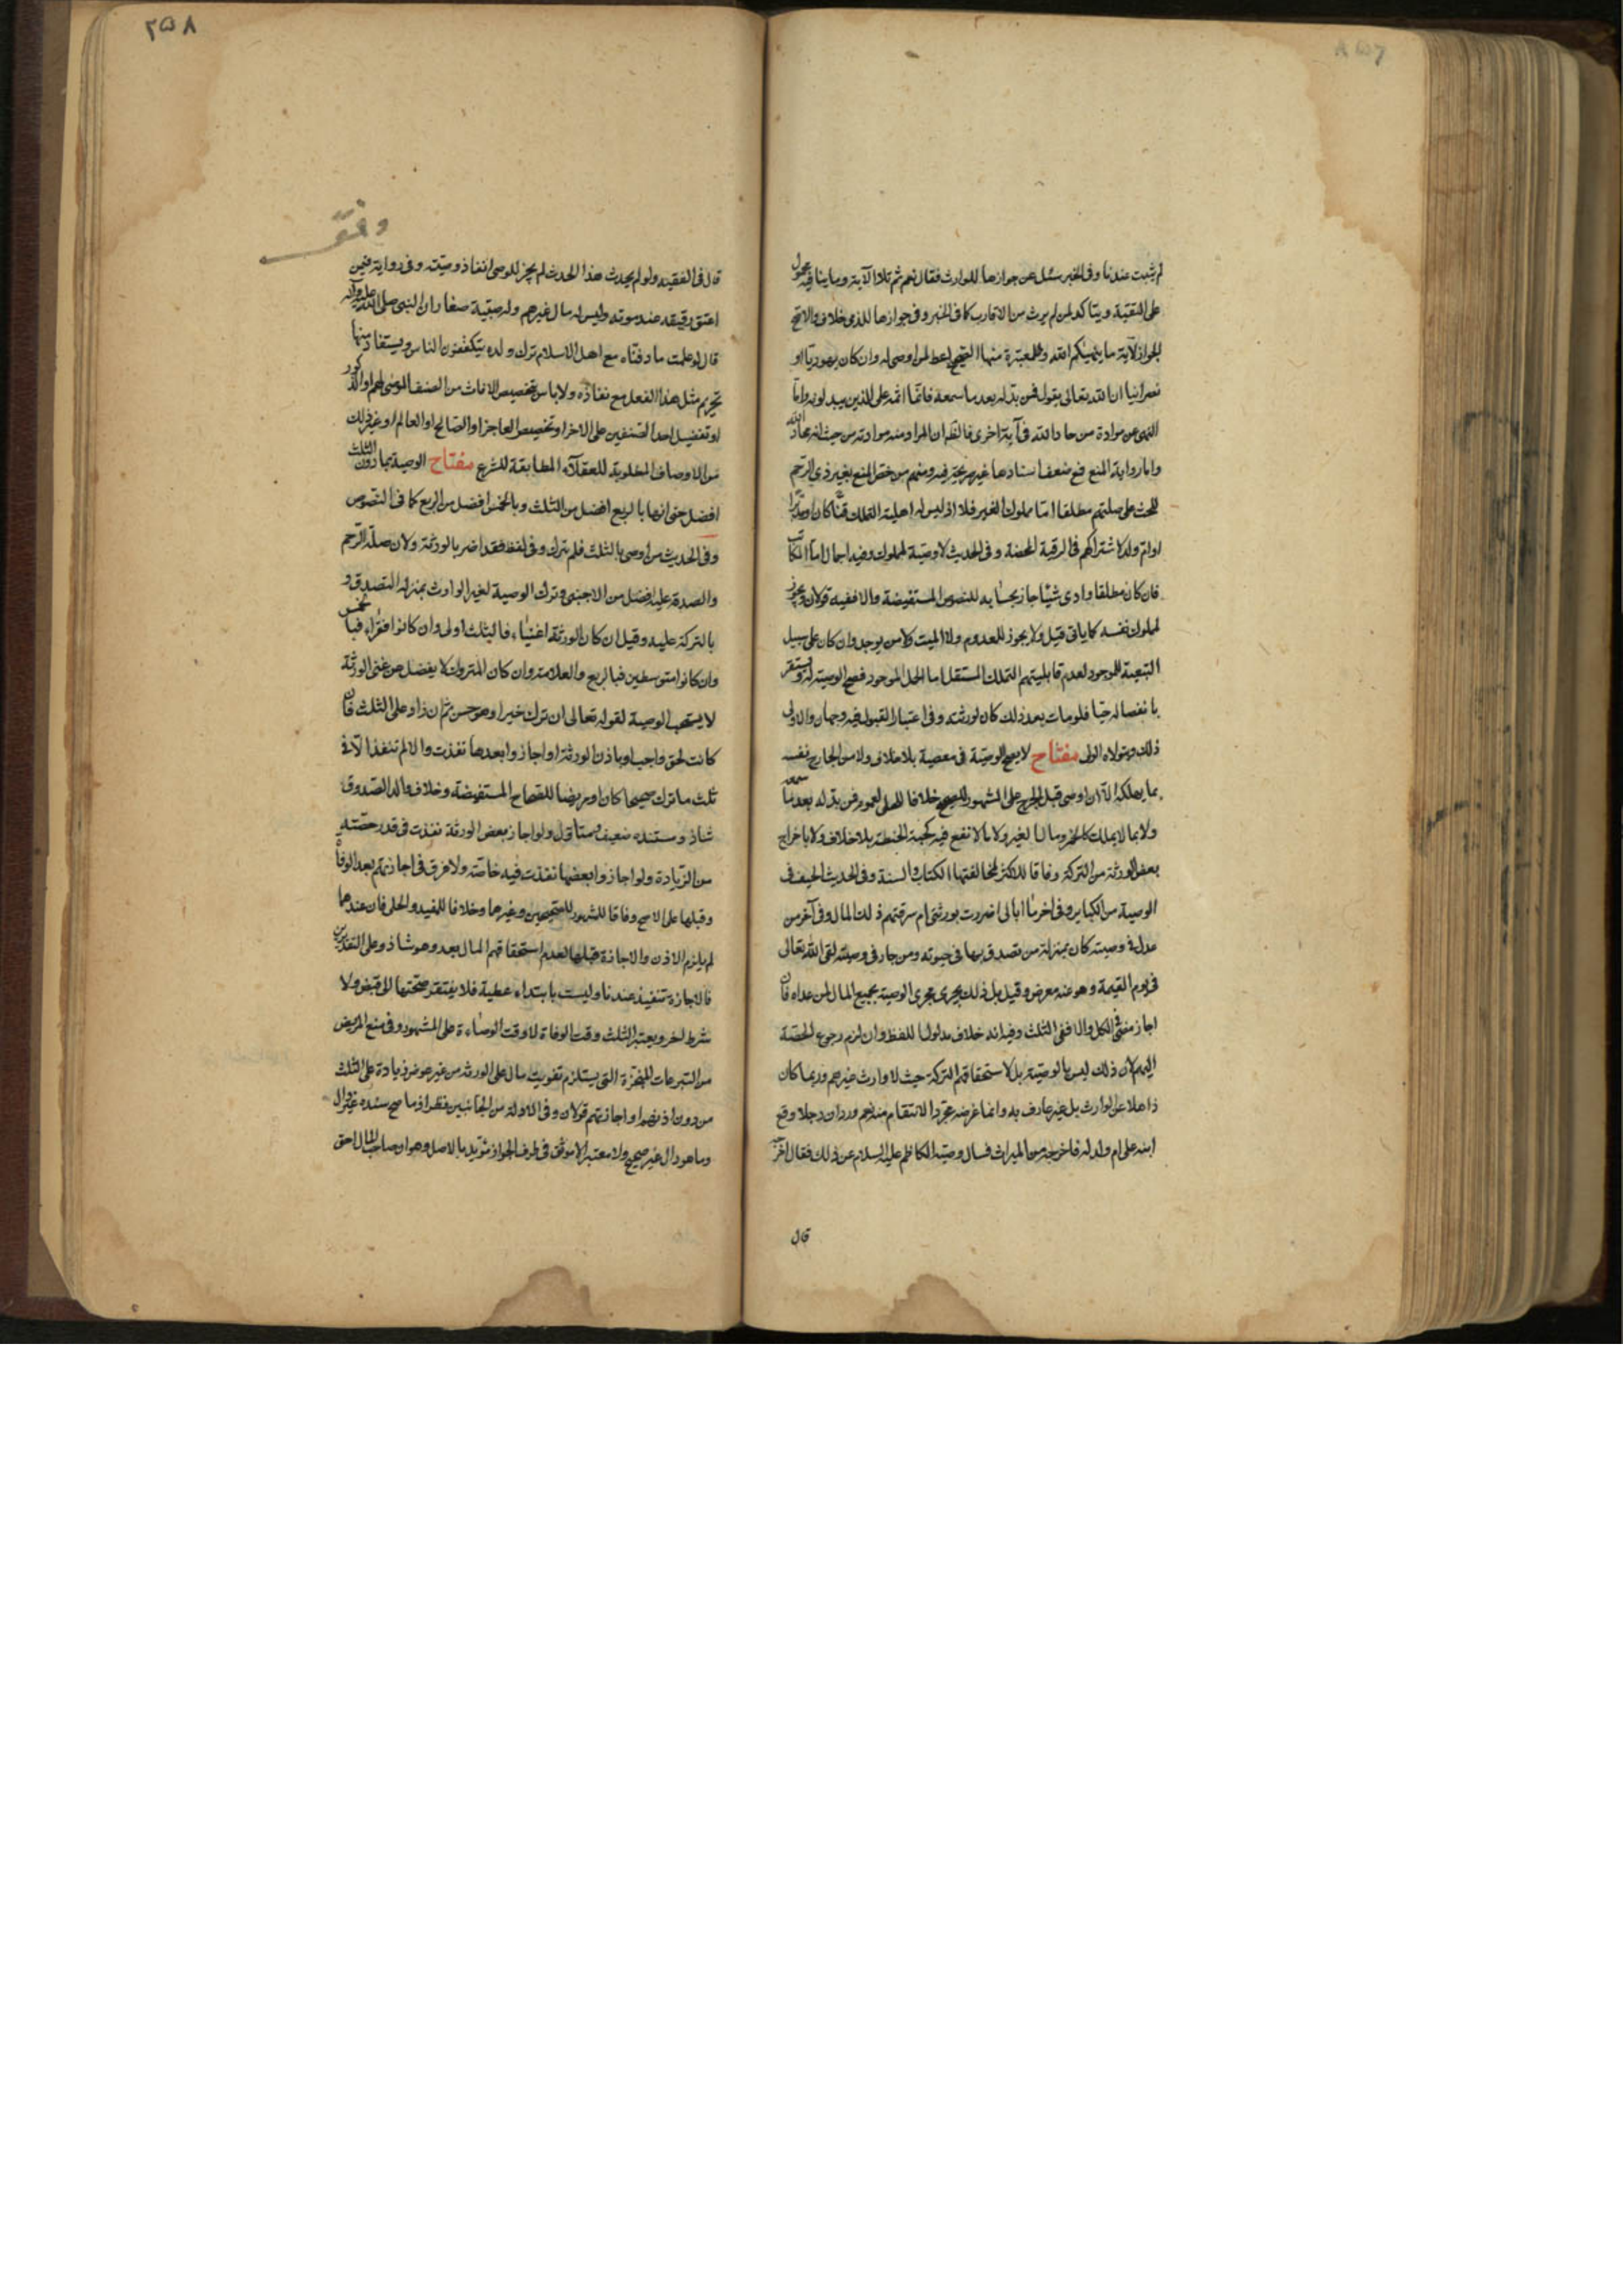 لم يثبت عندنا وفى الخبر سئل عن جوازها للوارث فقال نعم ثم تلا الآية وما ينافيه محمول
على التقية ويتاكد لمن لم يرث من الاقارب كما فى الخبر وفى جوازها للذمى خلاف والاصح
الجواز لآية ما ينهيكم الله وللمعتبرة منها الصحيح اعط لمن اوصى له وان كان يهوديا او
نصرانيا ان الله تعالى يقول فمن بدله بعد ما سمعه فانما اثمه على الذين يبدلونه واما
النهى عن موادة من حاد الله فى آية اخرى فالظ ان المراد منه موادته من حيث انه محاد الله
واما رواية المنع فمع ضعف اسنادها غير صريحة فيه ومنهم من خص المنع بغير ذى الرحم
للحث على صلتهم مطلقا اما مملوك الغير فلا اذ ليس له اهلية التملك قنا كان او مدبرا
او ام ولد لاشتراكهم فى الرقية المحضة وفى الحديث لا وصية لمملوك وفيه اجمال اما المكاتب
فان كان مطلقا وادى شيئا جاز بحسابه للنصوص المستفيضة والا ففيه قولان ويجوز
لمملوك نفسه كما ياتى قيل ولا يجوز للمعدوم ولا الميت ولا من يوجد وان كان على سبيل
التبعية للموجود لعدم قابليتهم التملك المستقل اما الحمل الموجود فصح الوصية له ويستقر
بانفصاله حيا فلو مات بعد ذلك كان لورثته وفى اعتبار القبول فيه وجهان والاولى
ذلك ويتولاه الولى مفتاح لا يصح الوصية فى معصية بلا خلاف ولا من الجارح نفسه
بما يهلكه الا ان اوصى قبل الجرح على المشهور للصحيح خلافا للحلى لعموم فمن بدله بعد ما سمعه
ولا بما لا يملك كالخمر ومال الغير ولا بما لا نفع فيه كحبة الحنطة بلا خلاف ولا باخراج
بعض الورثة من التركة وفاقا للاكثر لمخالفتها الكتاب والسنة وفى الحديث الحيف فى
الوصية من الكباير وفى اخر ما ابالى اضررت بورثتى ام سرقتهم ذلك المال وفى آخر من
عدل فى وصيته كان بمنزلة من تصدق بها فى حيوته ومن جار فى وصيته لقى الله تعالى
فى يوم القيمة وهو عنه معرض وقيل بل ذلك يجرى مجرى الوصية بجميع المال لمن عداه فان
اجاز مضى فى الكل والا ففى الثلث وفيه انه خلاف مدلول اللفظ وان لزم رجوع الحصة
اليهم لان ذلك ليس بالوصية بل لاستحقاقهم التركة حيث لا وارث غيرهم وربما كان
ذاهلا عن الوارث بل غير عارف به وانما غرضه مجرد الانتقام منه نعم ورد ان رجلا وقع
ابنه على ام ولد له فاخرجه من الميراث فسال وصيه الكاظم عليه السلام عن ذلك فقال اخرجه
قال
٢٥٨
وقف
قال فى الفقيه ولو لم يحدث هذا الحدث لم يجز للوصى انفاذ وصيته وفى رواية فيمن
اعتق رقيقه عند موته وليس له مال غيرهم وله صبية صغار ان النبى صلى الله عليه وآله
قال لو علمت ما دفناه مع اهل الاسلام ترك ولده يتكففون الناس ويستفاد منها
تحريم مثل هذا الفعل مع نفاذه ولا باس بتخصيص الاناث من الصنف الموصى لهم او الذكور
او تفضيل احد الصنفين على الاخر او تخصيص العاجز او الصالح او العالم او غير ذلك
من الاوصاف المطلوبة للعقلاء المطابقة للشرع مفتاح الوصية بما دون الثلث
افضل حتى انها بالربع افضل من الثلث وبالخمس افضل من الربع كما فى النصوص
وفى الحديث من اوصى بالثلث فلم يترك وفى لفظ فقد اضر بالورثة ولان صلة الرحم
والصدقة عليه افضل من الاجنبى وترك الوصية لغير الوارث بمنزلة التصدق
بالتركة عليه وقيل ان كان الورثة اغنياء فالثلث اولى وان كانوا فقراء فبالخمس
وان كانوا متوسطين فبالربع والعلامة وان كان المتروك لا يفضل عن غنى الورثة
لا يستحب الوصية لقوله تعالى ان ترك خيرا وهو حسن ثم ان زاد على الثلث فان
كانت لحق واجب او باذن الورثة او اجازوا بعدها نفذت والا لم تنفذ الا فى
ثلث ما ترك صحيحا كان او مريضا للصحاح المستفيضة وخلاف والد الصدوق
شاذ ومستنده ضعيف ومتاول ولو اجاز بعض الورثة نفذت فى قدر حصته
من الزيادة ولو اجازوا بعضها نفذت فيه خاصة ولا فرق فى اجازتهم بعد الوفاة
وقبلها على الاصح وفاقا للمشهور للصحيحين وغيرهما وخلافا للمفيد والحلى فان عندهما
لم يلزم الاذن والاجازة قبلها لعدم استحقاقهم المال بعد وهو شاذ وعلى التقديرين
فالاجازة تنفيذ عندنا وليست بابتداء عطية فلا يفتقر صحتها الى قبض ولا
شرط اخر ويعتبر الثلث وقت الوفاة لا وقت الوصاءة على المشهور وفى منع المريض
من التبرعات المنجزة التى يستلزم تفويت مال على الورثة من غير عوض زيادة على الثلث
من دون اذنهم او اجازتهم قولان وفى الادلة من الجانبين نظر اذ ما صح سنده غير دال
وما هو دال غير صحيح ولا معتبر الا موثق فى طرف الجواز مؤيد بالاصل وهو ان صاحب المال احق